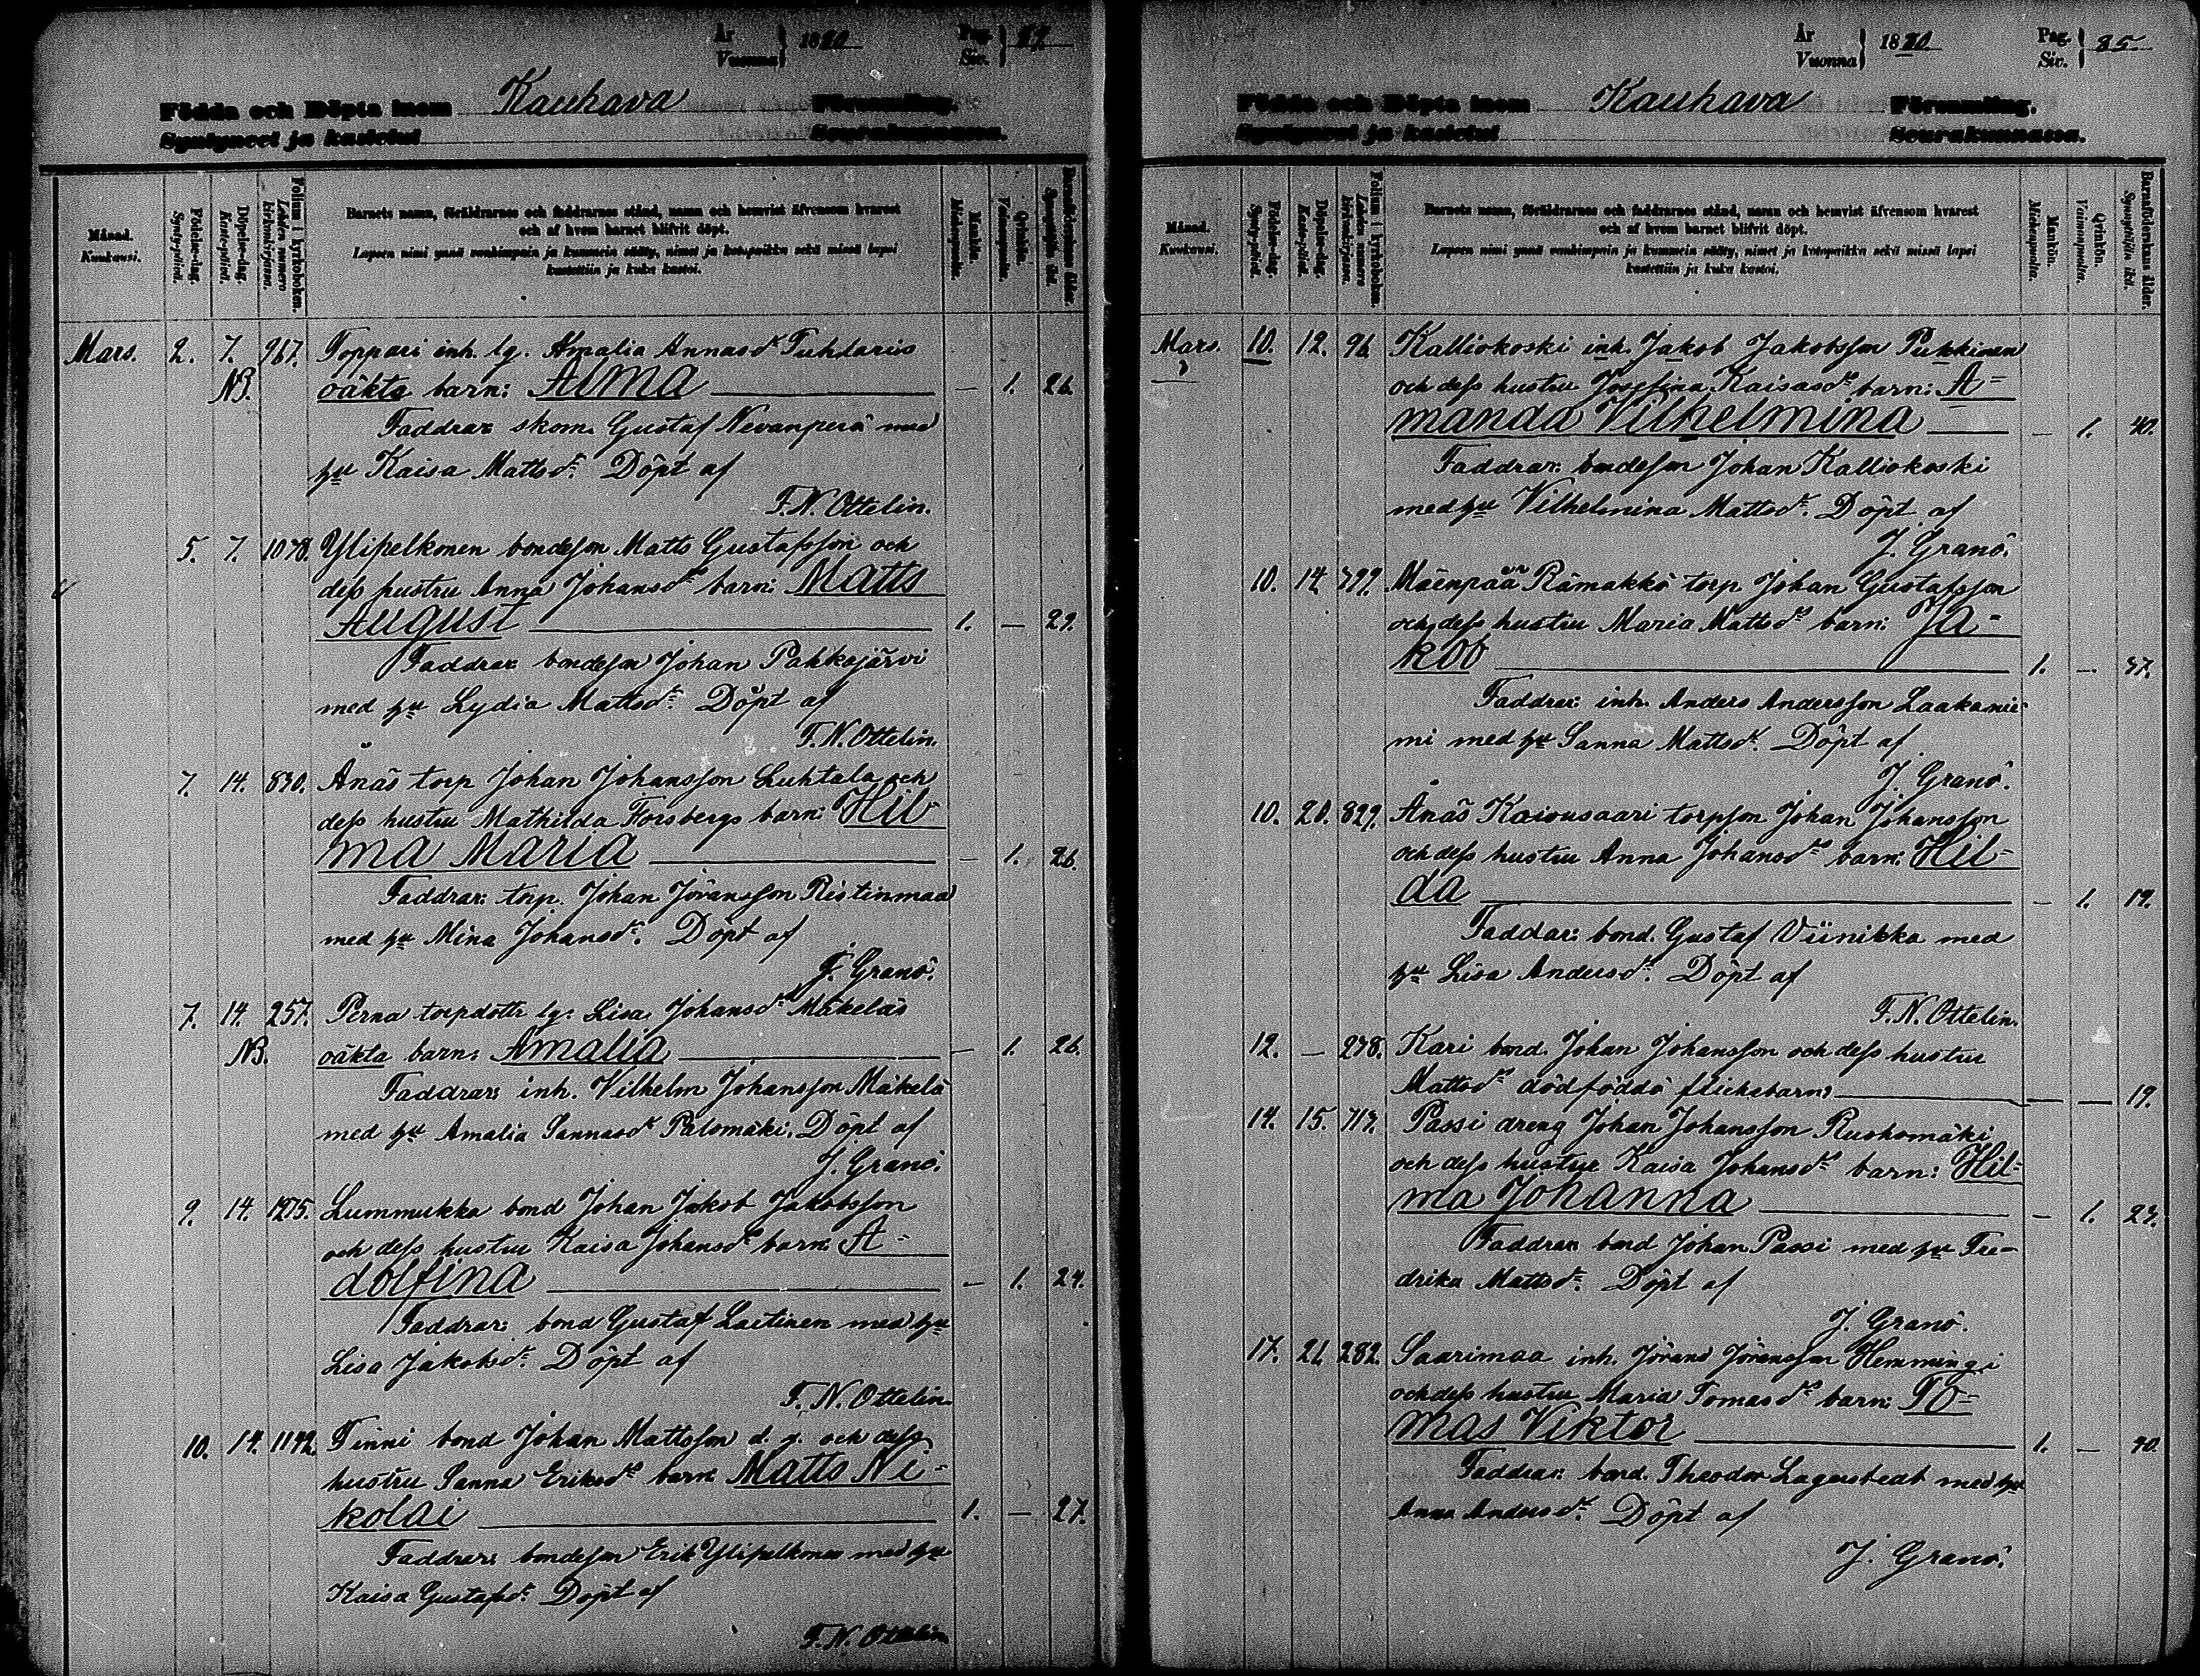 År
Vuonna } 1880
Pag.
Siv. }
Födda och Döpta inom Kauhava Församling.
Syntyneet ja kastetut Seurakunnassa.
Månad.
Kuukausi.
Födelse-dag.
Synty-päivä.
Döpelse-dag.
Kaste-päivä.
Folium i kyrkoboken.
Lehden numero kirkonkirjassa.
Barnets namn, föräldrarnes och faddrarnes stånd, namn och hemvist äfvensom hvarest
och af hvem barnet blifvit döpt.
Lapsen nimi ynnä vanhimpain ja kummein sääty, nimet ja kotopaikka sekä missä lapsi
kastettiin ja kuka kastoi.
Mankön.
Miehenpuolta.
Qvinkön.
Vaimonpuolta.
Barnaföderskans ålder.
Synnyttäjän ikä.
Mars. 2. 7. 967. Toppari inh. lg. Amalia Annasdr
NB. oäkta barn: Alma — 1. 26.
Faddrar: skom. Gustaf Nevanperä med
hu Kaisa Mattsdr. Döpt af
F. N. Ottelin.
5. 7. 1078. Ylipelkonen bondeson Matts Gustafsson och
dess hustru Anna Johansdrs barn: Matts
August 1. — 29.
Faddrar: bondeson Johan Pahkajärvi
med hu Lydia Mattsdr. Döpt af
F. N. Ottelin.
7. 14. 830. Änäs torp Johan Johansson Luhtala och
dess hustru Mathilda Forsbergs barn: Hil-
ma Maria — 1. 26.
Faddrar: torp. Johan Jöransson Ristinmaa
med hu Mina Johansdr. Döpt af
J. Granö.
7. 14. 257. Perna torpdottr lg. Lisa Johansdr Mäkeläs
NB. oäkta barn: Amalia — 1. 26.
Faddrar: inh. Vilhelm Johansson Mäkelä
med hu Amalia Sannasdr Palomäki. Döpt af
J. Granö.
9. 14. 1275. Lummukka bond Johan Jakob Jakobsson
och dess hustru Kaisa Johansdrs barn: A-
dolfina — 1. 24.
Faddrar: bond Gustaf Laitinen med hu
Lisa Jakobsdr. Döpt af
F. N. Ottelin.
10. 14. 1142. Finni bond Johan Mattsson d. y. och dess
hustru Sanna Eriksdrs barn: Matts Ni-
kolai 1. — 27.
Faddrar: bondeson Erik Ylipelkonen med hu
Kaisa Gustafsdr. Döpt af
F. N. Ottelin.
År
Vuonna } 1880
Pag.
Siv. } 85
Födda och Döpta inom Kauhava Församling.
Syntyneet ja kastetut Seurakunnassa.
Månad.
Kuukausi.
Födelse-dag.
Synty-päivä.
Döpelse-dag.
Kaste-päivä.
Folium i kyrkoboken.
Lehden numero kirkonkirjassa.
Barnets namn, föräldrarnes och faddrarnes stånd, namn och hemvist äfvensom hvarest
och af hvem barnet blifvit döpt.
Lapsen nimi ynnä vanhimpain ja kummein sääty, nimet ja kotopaikka sekä missä lapsi
kastettiin ja kuka kastoi.
Mankön.
Miehenpuolta.
Qvinkön.
Vaimonpuolta.
Barnaföderskans ålder.
Synnyttäjän ikä.
Mars. 10. 12. 96. Kalliokoski inh. Jakob Jakobsson Pukkinen
och dess hustru Josefina Kaisasdrs barn: A-
manda Vilhelmina — 1. 40.
Faddrar: bondeson Johan Kalliokoski
med hu Vilhelmina Mattsdr. Döpt af
J. Granö.
10. 14. 799. Mäenpää Rämäkkö torp Johan Gustafsson
och dess hustru Maria Mattsdrs barn: Ja-
kob 1. — 37.
Faddrar: inh. Anders Andersson Laakanie-
mi med hu Sanna Mattsdr. Döpt af
J. Granö.
10. 20. 829. Änäs Kaivusaari torpson Johan Johansson
och dess hustru Anna Johansdrs barn: Hil-
da — 1. 19.
Faddar: bond. Gustaf Viinikka med
hu Lisa Andersdr. Döpt af
F. N. Ottelin.
12. — 278. Kari bond. Johan Johansson och dess hustru
Mattsdrs dödfödda flickebarn — — 19.
14. 15. 717. Passi dreng Johan Johansson Ruokomäki
och dess hustru Kaisa Johansdrs barn: Hil-
ma Johanna — 1. 27.
Faddrar: bond Johan Passi med hu Fre-
drika Mattsdr. Döpt af
J. Granö.
17. 21. 282. Saarimaa inh. Jörans Jöransson Hemmingi
och dess hustru Maria Tomasdrs barn: To-
mas Viktor 1. — 40.
Faddrar: bond. Theodor Lagerstedt med hu
Anna Andersdr. Döpt af
J. Granö.